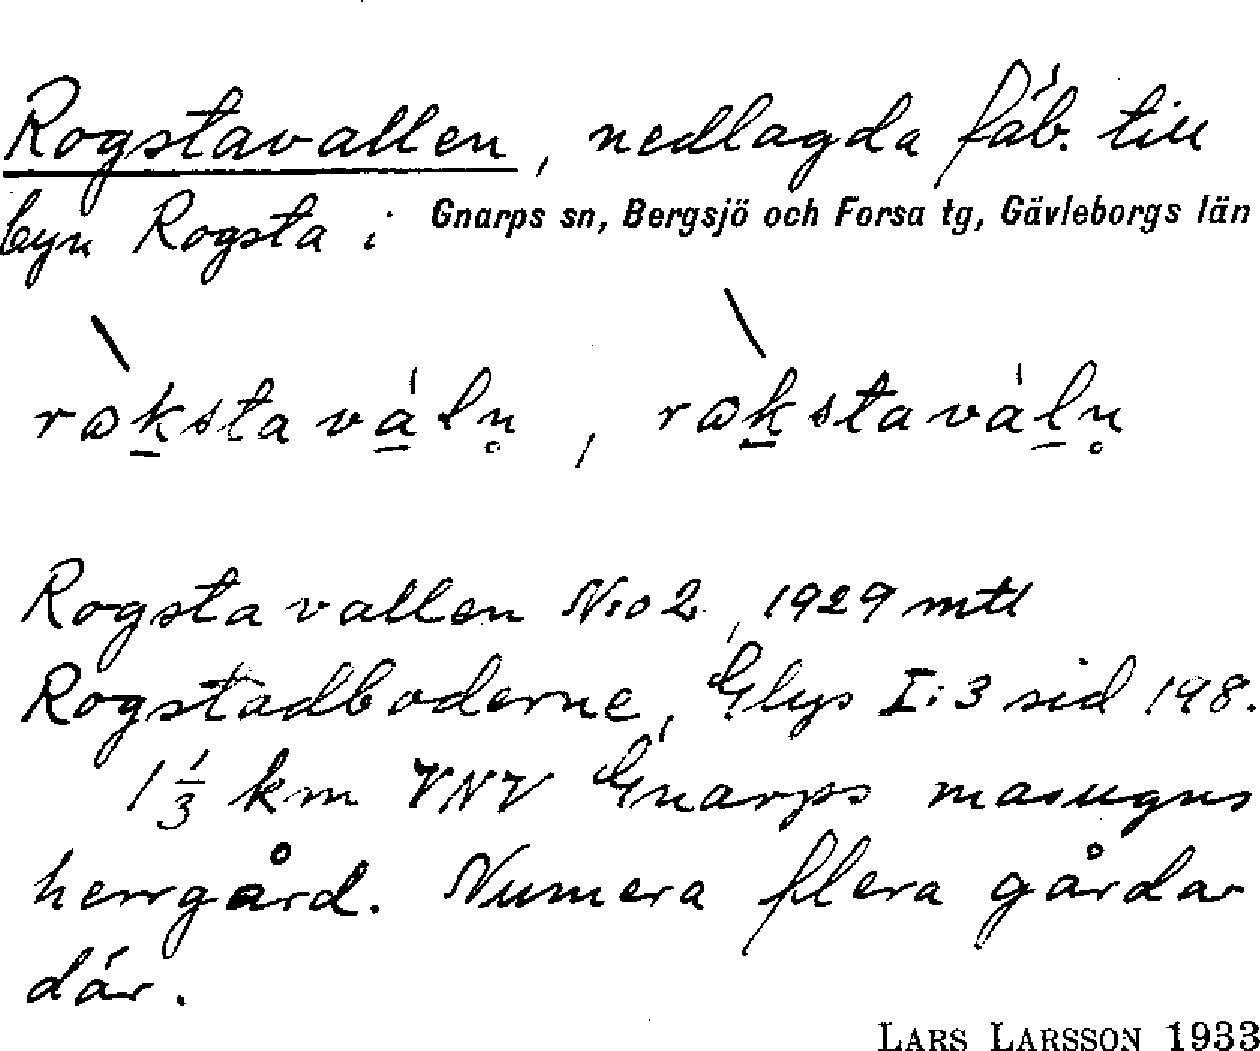 Rogstavallen, nedlagda fäb. till
byn Rogsta i Gnarps sn, Bergsjö och Forsa tg, Gävleborgs län
Rogstavallen N:o 2, 1929 mtl
Rogstadboderne, Glys I:3 sid 198.
1 1/3 km VNV Gnarps masugns
herrgård. Numera flera gårdar
där.
LARS LARSSON 1933